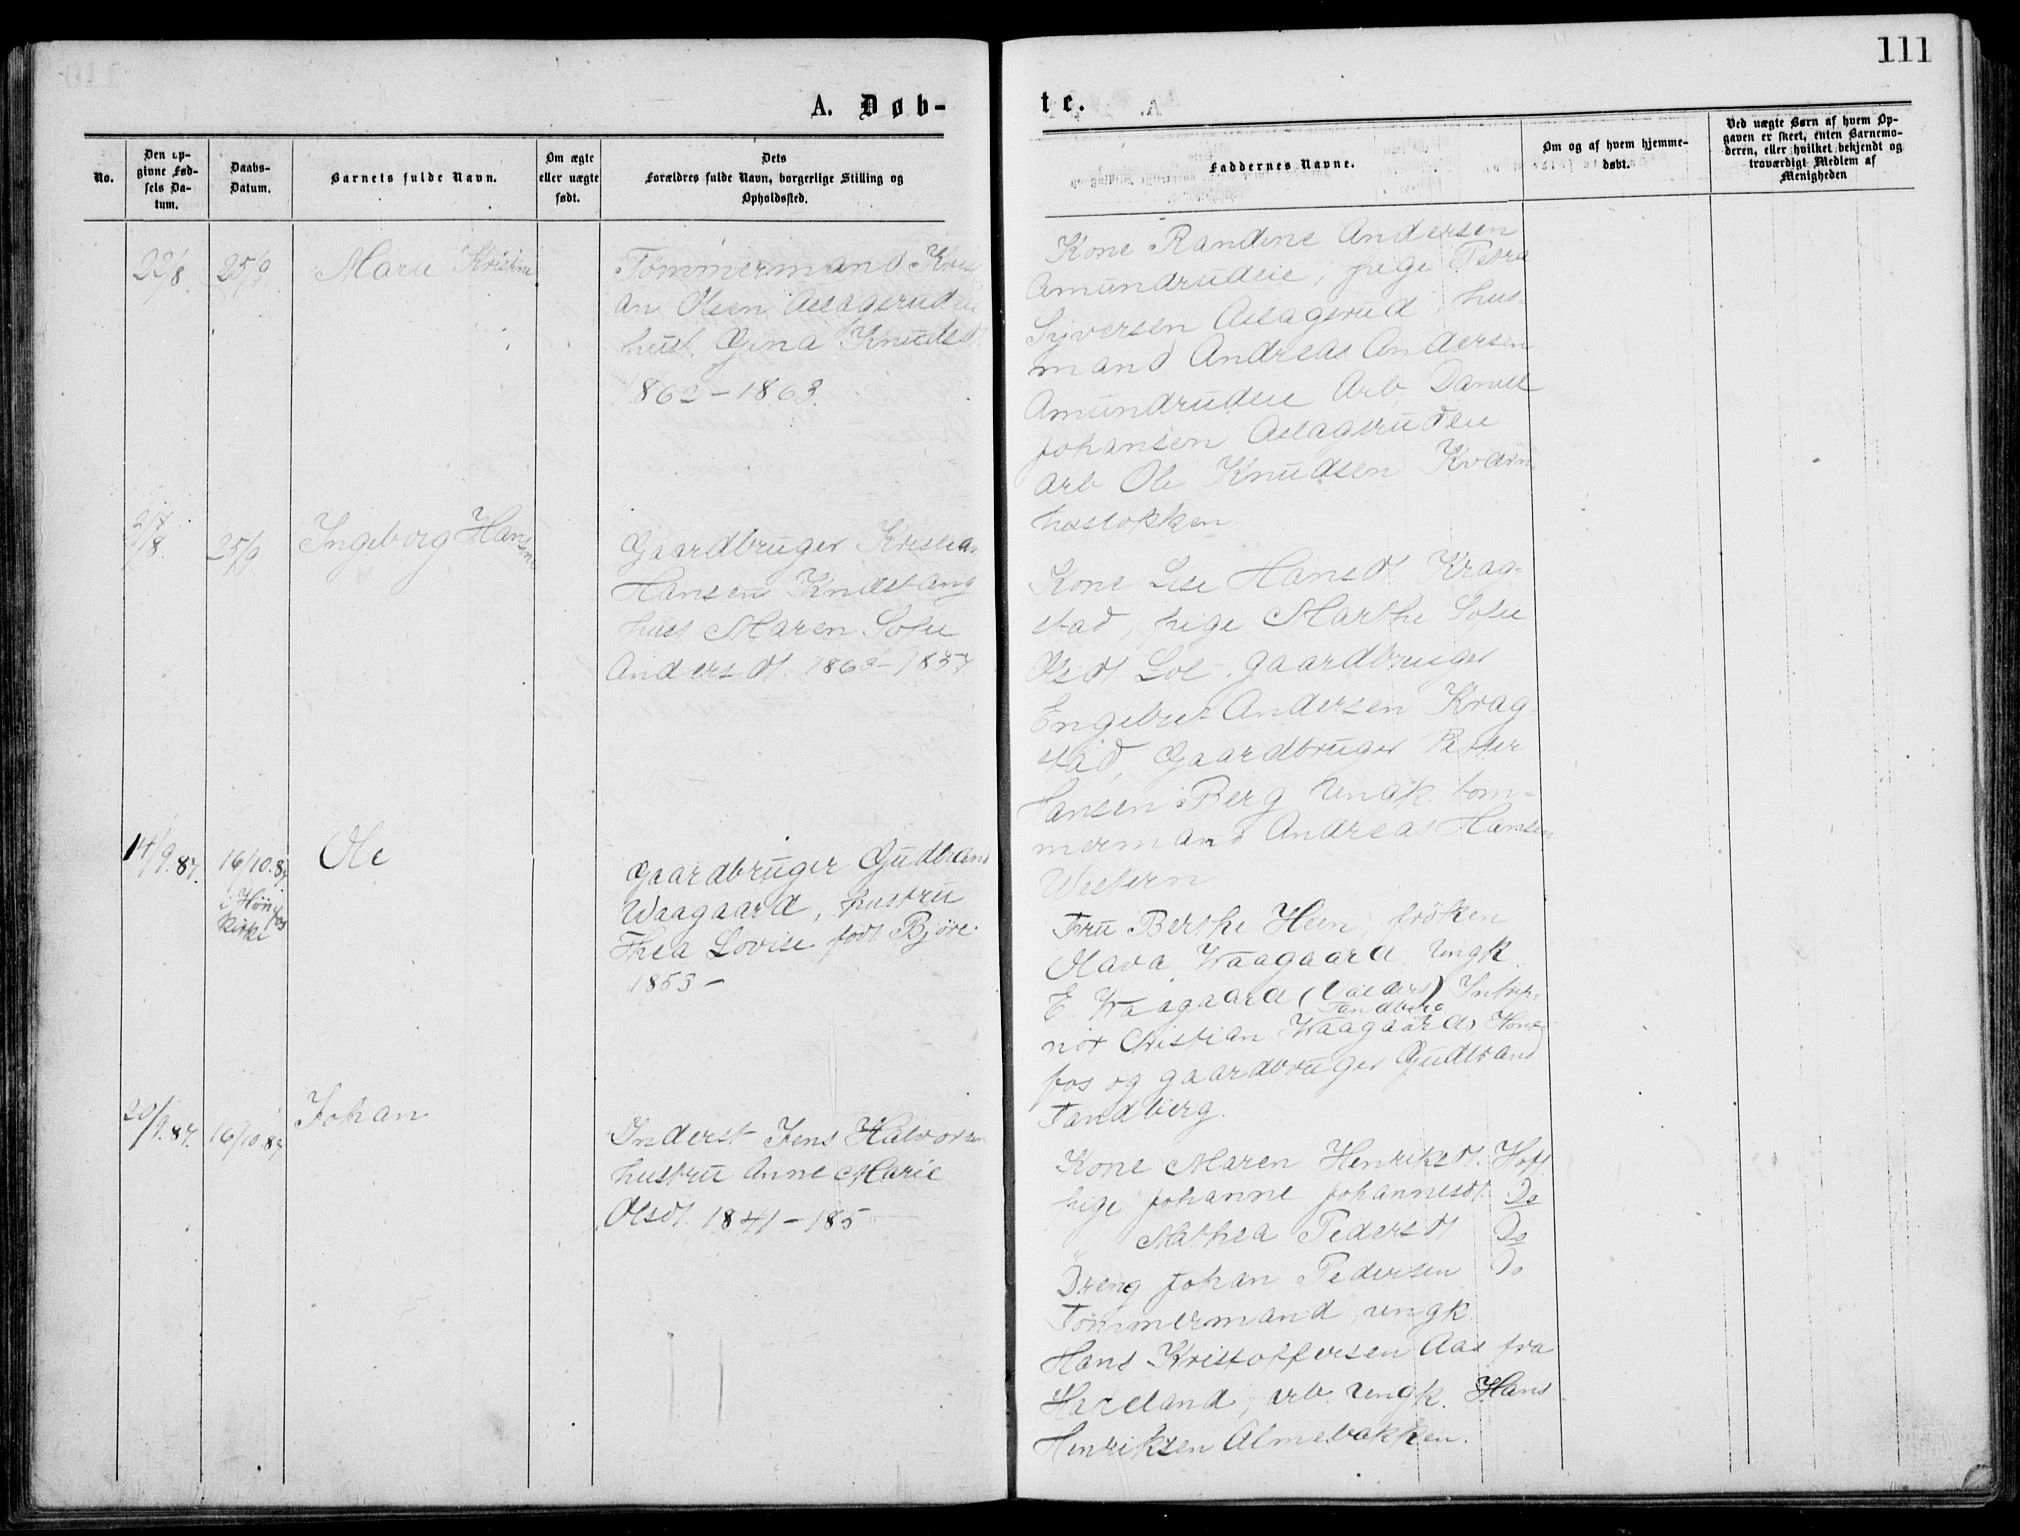 111
A. Døb-
te.
No.
Den op-
givne Fød-
sels Da-
tum.
Daabs-
Datum.
Barnets fulde Navn.
Om ægte
eller uægte
født.
Dets
Forældres fulde Navn, borgerlige Stilling og
Opholdssted.
Faddernes Navne.
Om og af hvem hjemme-
døbt.
Ved uægte Børn af hvem Op-
gaven er skeet, enten Barnemo-
deren, eller hvilket bekjendt og
troværdigt Medlem af
Menigheden
22/8.
25/9
Marie Kristine
Tømmermand Kristi
an Olsen Aslagsrudeie
hust. Gina Knudsdt.
1862-1863.
Kone Randine Andersen
Amundrudeie, pige Petra
Syversen Aslagsrud, hus-
mand Andreas Andersen
Amundrudeie Arb. Daniel
Johansen Aslagsrudeie
arb Ole Knudsen Kværn
husløkken.
25/9
Ingeborg Hansine
Gaardbruger Kristian
Hansen Knestang
hust Maren Sofie
Andersdt. 1863-1857
Kone Lise Hansdt. Krag-
stad, pige Marthe Sofie
Olsdt. Loe. gaardbruger
Engebret Andersen Krag-
stad, Gaardbruger Petter
Hansen Berg Ungk. tøm-
mermand Andreas Hansen
Western
14/9.87.
16/10.87
i Hønefos
Kirke
Ole
Gaardbruger Gudbrand
Waagaard, hustru
Thea Lovise født Bjøre.
1853-
Fru Berthe Hein, frøken
Olava Waagaard, Ungk.
E. Waagaard (Valders) Intrep-
Tandberg
nør Christian Waagaard, Hønefos
fos og gaardbruger Gudbrand
Tandberg.
20/9.87.
16/10.87
Johan
Inderst Jens Halvorsen
hustru Anne Marie
Olsdt. 1841-185
Kone Maren Henriksdt. Hoff
pige Johanne Johannesdt. Do
" Mathea Pedersdt Do
Dreng Johan Pedersen Do
Tømmermand, ungk.
Hans Kristoffersen Aas fra
Hadeland, arb. Ungk. Hans
Henriksen Almebakken.